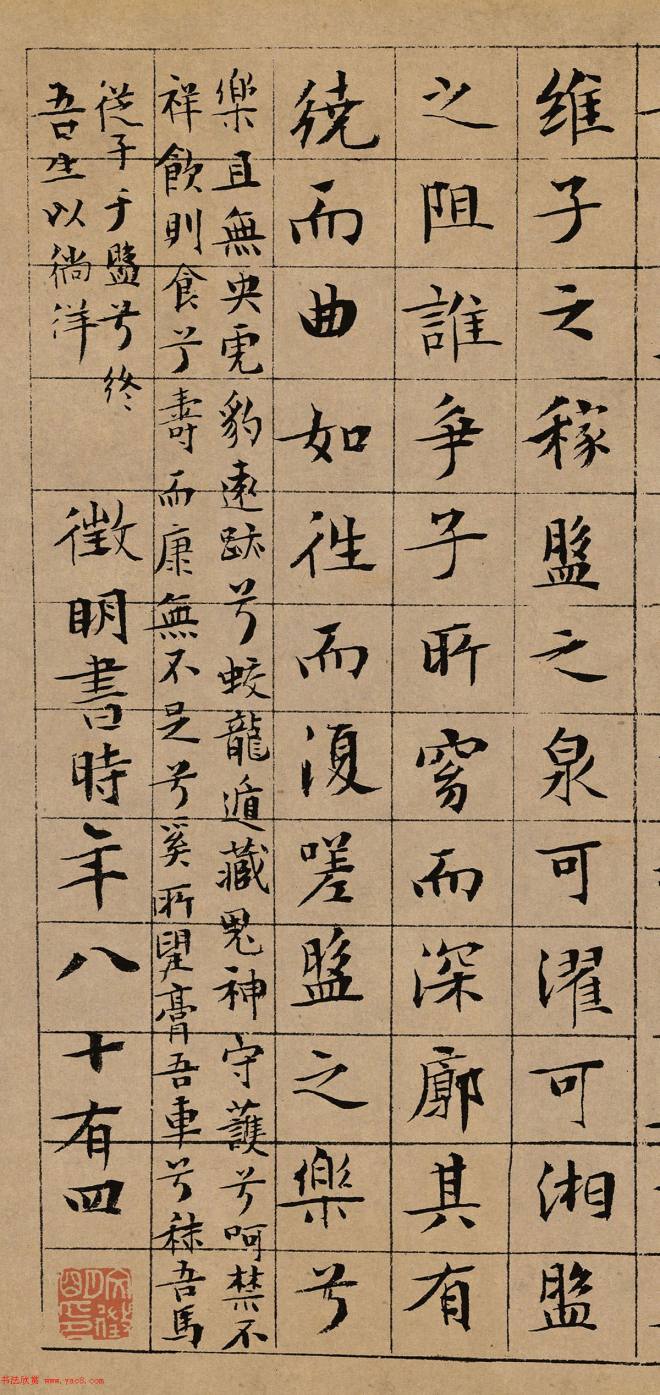 維子之稼盤之泉可濯可湘盤
之阻誰爭子所窈而深廓其有
繞而曲如徃而復嗟盤之樂兮
樂且無央虎豹遠跡兮蛟龍遁藏鬼神守護兮呵禁不
祥飲則食兮壽而康無不足兮奚所望膏吾車兮秣吾馬
從子于盤兮終
吾生以徜洋
徵明書時年八十有四
文徵明印
书法欣赏 www.yac8.com